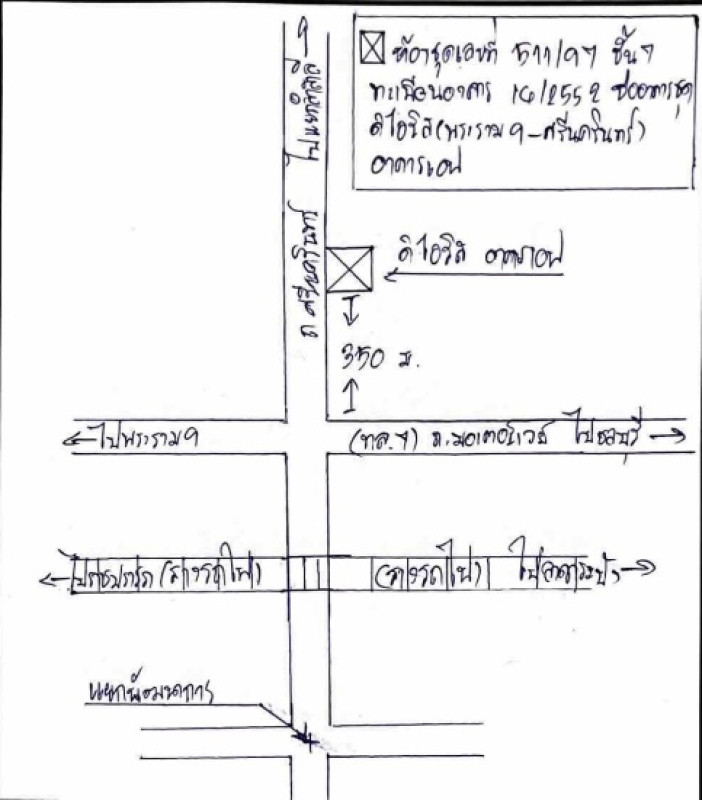 ห้องชุดเลขที่ 511/97 ชั้น 7
ทะเบียนอาคาร 14/2552 ชื่ออาคารชุด
ดิไอริส(พระราม 9-ศรีนครินทร์)
อาคารเอฟ
ถ.ศรีนครินทร์
ดิไอริส อาคารเอฟ
350 ม.
ไปพระราม 9
(ทล.7) ถ.มอเตอร์เวย์ ไปชลบุรี
(ทางรถไฟ)
(ทางรถไฟ) ไปลาดกระบัง
แยกพัฒนาการ